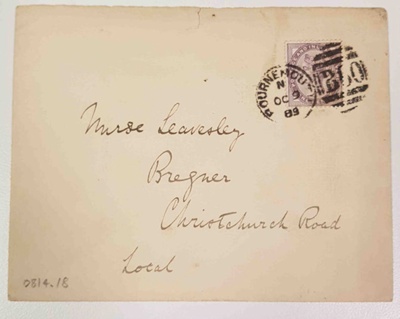 BOURNEMOUTH
N
OC 9
89
Nurse Leavesley
Bregner
Christchurch Road
Local
0814.18